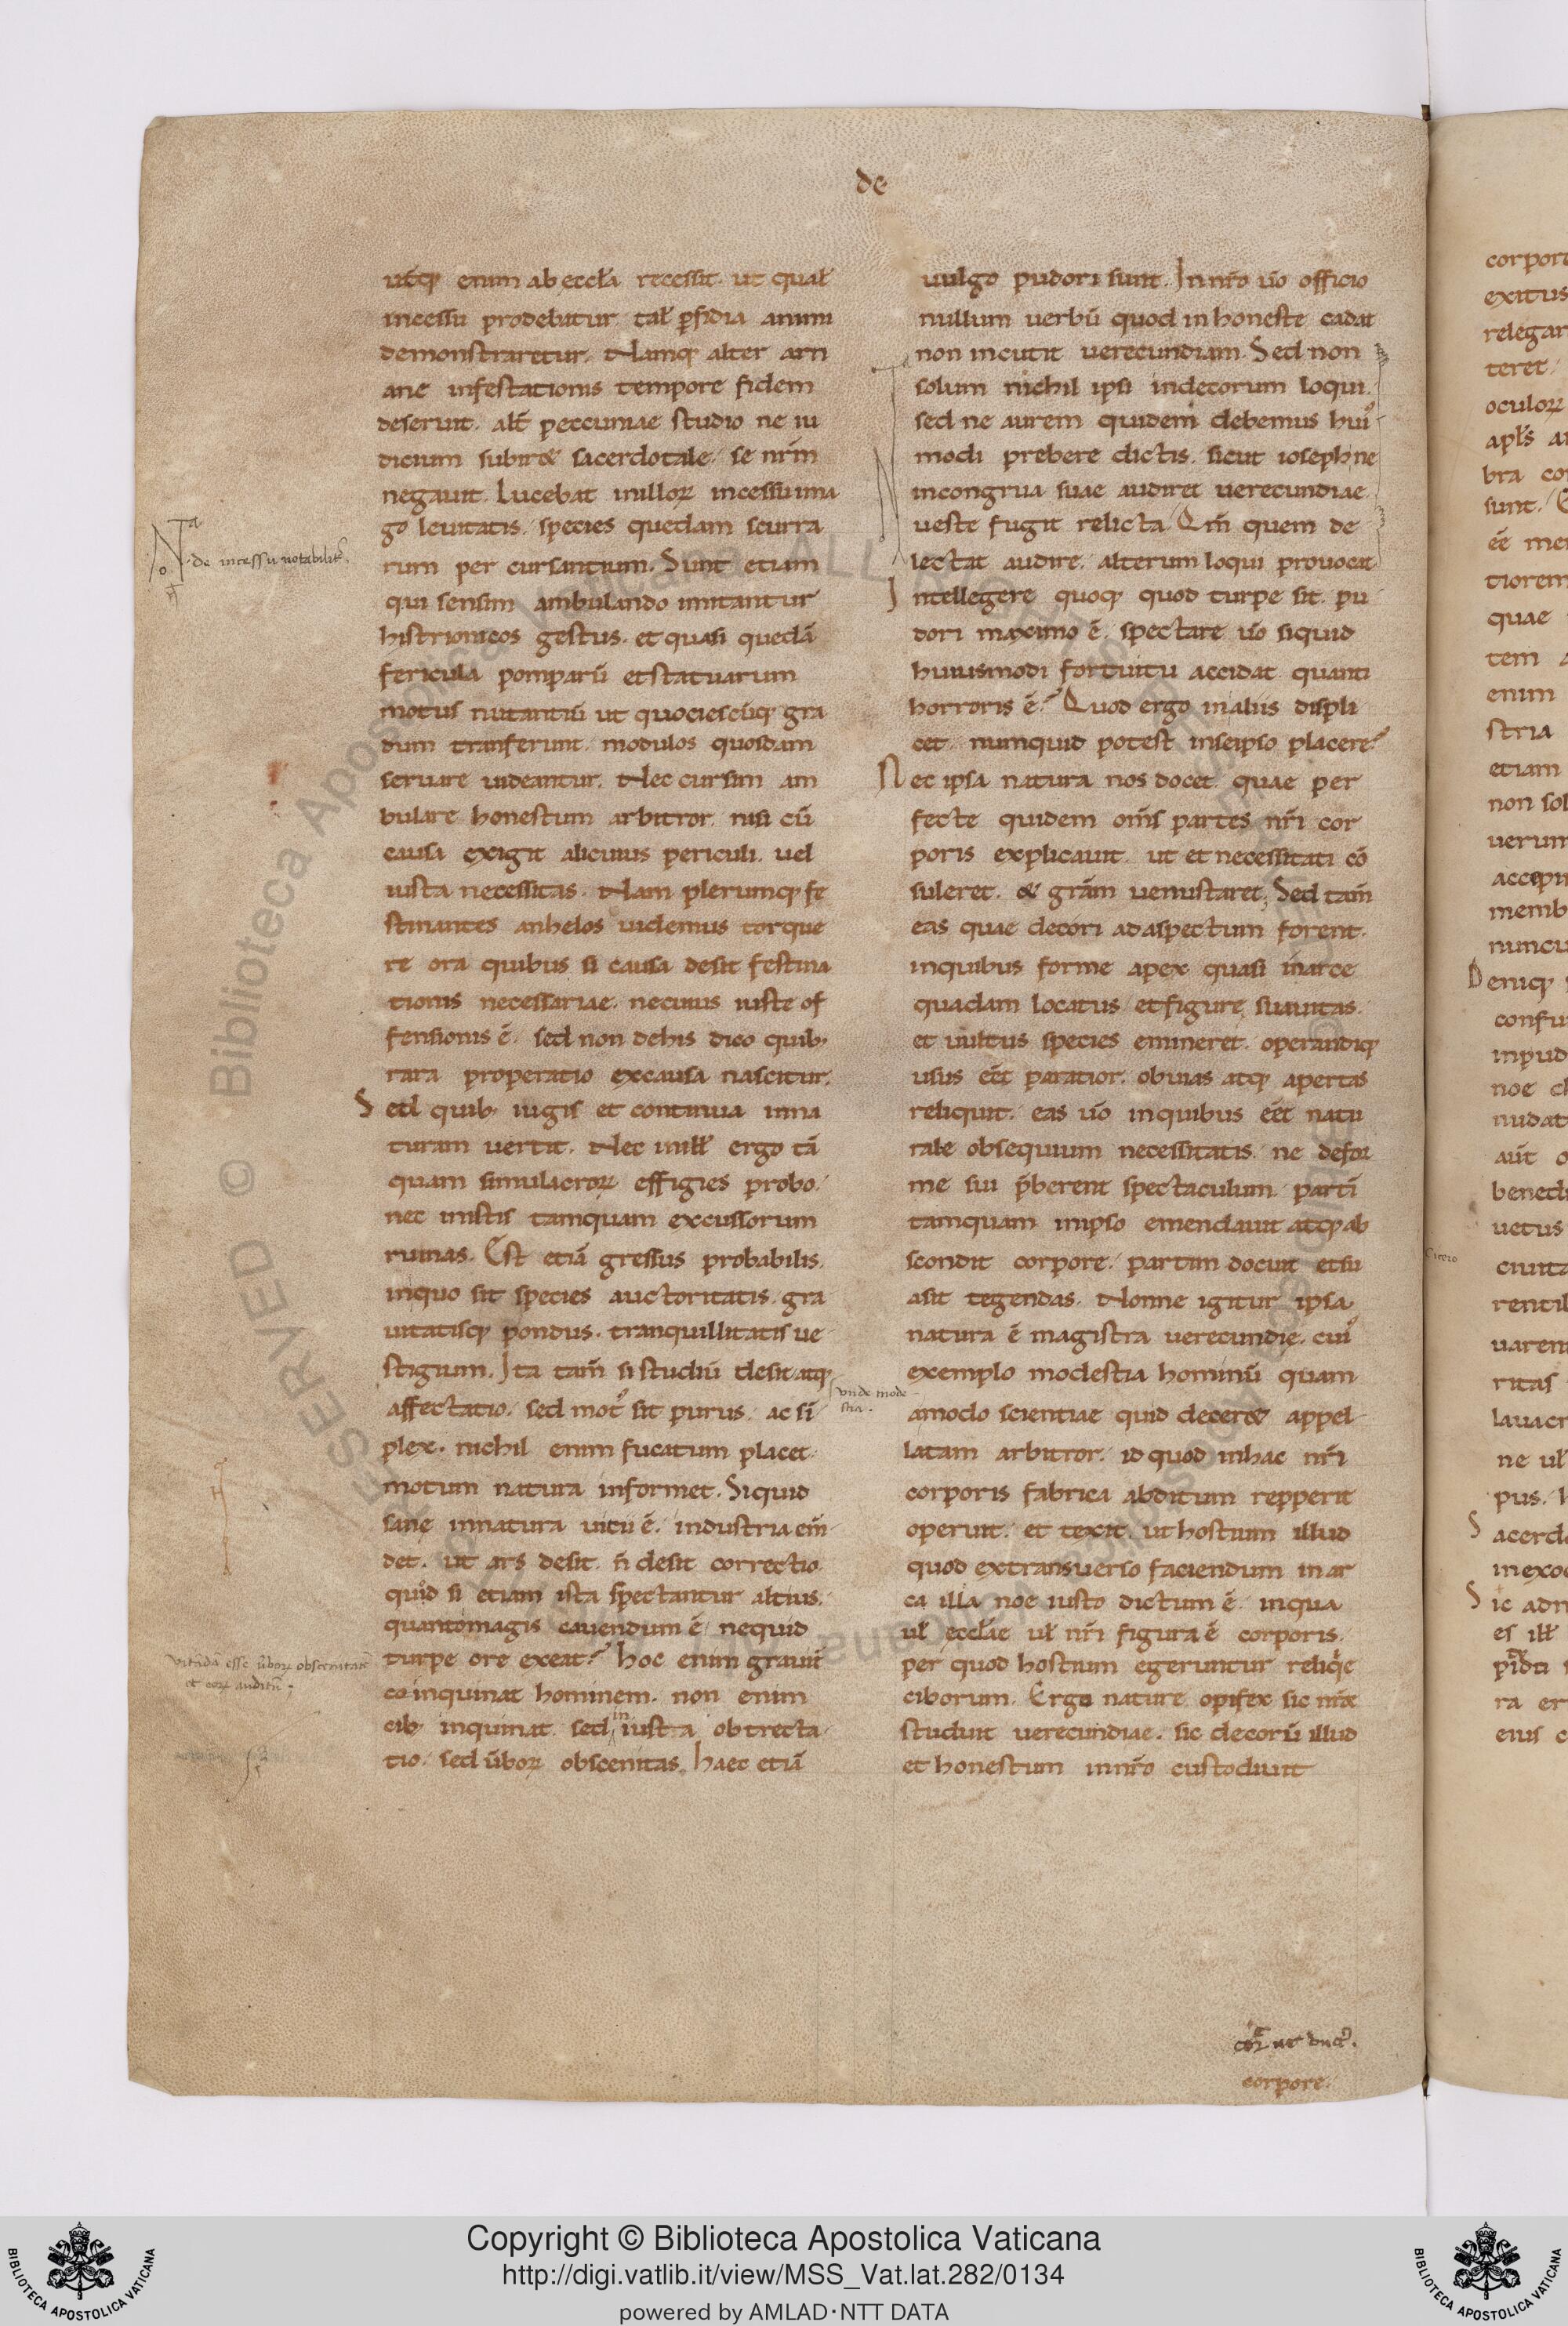 de
utq; enim ab eccl̄a recessit. ut qual̄
incessu prodebatur. tal̄ ꝑfidia animi
demonstraretur. Namq; alter arri
anę infestationis tempore fidem
deseruit. alt̄ peccuniae studio ne iu
dicium subiret sacerdotale. se nr̄m
negauit. Lucebat inilloꝝ incessu ima
go leuitatis. species quedam scurra
rum per cursantium. Sunt etiam
qui sensim ambulando imitantur
histrionicos gestus. et quasi quedā
fericula pomparū et statuarum
motus nutantiū ut quociescūq; gra
dum tranferunt. modulos quosdam
seruare uideantur. Nec cursim am
bulare honestum arbitror. nisi cū
causa exigit alicuius periculi. uel
iusta necessitas. Nam plerumq; fe
stinantes anhelos uidemus torque
re ora quibus si causa desit festina
tionis necessariae. necuius iuste of
fensionis ē. sed non dehis dico quib;
rara properatio excausa nascitur.
Sed quib; iugis et continua inna
turam uertit. Nec inill̄ ergo tā
quam simulacroꝝ effigies probo.
nec inistis tamquam excussorum
ruinas. Est etiā gressus probabilis.
inquo sit species auctoritatis. gra
uitatisq; pondus. tranquillitatis ue
stigium. Ita tam̄ si studiū desit atq;
affectatio. sed mot᾽ sit purus. ac sī
plex. nichil enim fucatum placet.
motum natura informet. Siquid
sanę innatura uitii ē. industria em̄
det. ut ars desit. n̄ desit correctio.
quid si etiam ista spectantur altius.
quantomagis cauendum ē nequid
turpe ore exeat? hoc enim grauit̄
coinquinat hominem. non enim
cib; inquinat. sed in iusta obtrecta
tio. sed ūboꝝ obscenitas. haec etiā
uulgo pudori sunt. Innr̄o ūo officio
nullum uerbū quod inhoneste cadat
non incutit uerecundiam. Sed non
solum nichil ipsi indecorum loqui.
sed ne aurem quidem debemus hui᾽
modi prebere dictis. sicut ioseph ne
incongrua suae audiret uerecundiae.
ueste fugit relicta. Qm̄ quem de
lectat audire. alterum loqui prouocat.
Intellegere quoq; quod turpe sit. pu
dori maximo ē. spectare ūo siquid
huiusmodi fortuitu accidat quanti
horroris ē? Quod ergo inaliis displi
cet. numquid potest inseipso placere?
Nec ipsa natura nos docet. quae per
fecte quidem om̄s partes nr̄i cor
poris explicauit. ut et necessitati cō
suleret. & grām uenustaret. Sed tam̄
eas quae decori ad aspectum forent.
inquibus forme apex quasi inarce
quadam locatus. et figurę suauitas.
et uultus species emineret. operandiq;
usus eēt paratior. obuias atq; apertas
reliquit. eas ūo inquibus eēt natu
rale obsequium necessitatis. ne defor
me sui p̄berent spectaculum. partī
tamquam inipso emendauit atq; ab
scondit corpore. partim docuit et su
asit tegendas. Nonne igitur ipsa
natura ē magistra uerecundię. cui᾽
exemplo modestia hominū quam
amodo scientiae quid deceret appel
latam arbitror. id quod inhac nr̄i
corporis fabrica abditum repperit
operuit. et texit. ut hostium illud
quod extransuerso faciendum in ar
ca illa noe iusto dictum ē. inqua
ul̄ eccl̄ae ul̄ nr̄i figura ē corporis.
per quod hostium egeruntur reliqͥe
ciborum. Ergo nature opifex sic nr̄ae
studuit uerecundiae. sic decorū illud
et honestum innr̄o custodiuit
corpore.
Nota
de incessu notabilit̄.
vitādā esse ūboꝝ obscenitatē
et eoꝝ auditū.
vnde mode
stia.
Cicero
corpore
exitus
relegar
teret.
oculoꝝ
apl̄s
bra
sunt.
eē
tiorem
quae
tem
enim
stria
etiam
non sol
uerum
memb
nuncu
Deniq;
confu
inpud
noe
nudat
aūt
bened
uetus
ciuita
rentib
uarem
ritas
lauacr
ne ul̄
pus.
Sacerd
inexo
Sic adm
es ill̄
ra er
eius
Copyright © Biblioteca Apostolica Vaticana
http://digi.vatlib.it/view/MSS_Vat.lat.282/0134
powered by AMLAD·NTT DATA
BIBLIOTECA APOSTOLICA VATICANA
BIBLIOTECA APOSTOLICA VATICANA